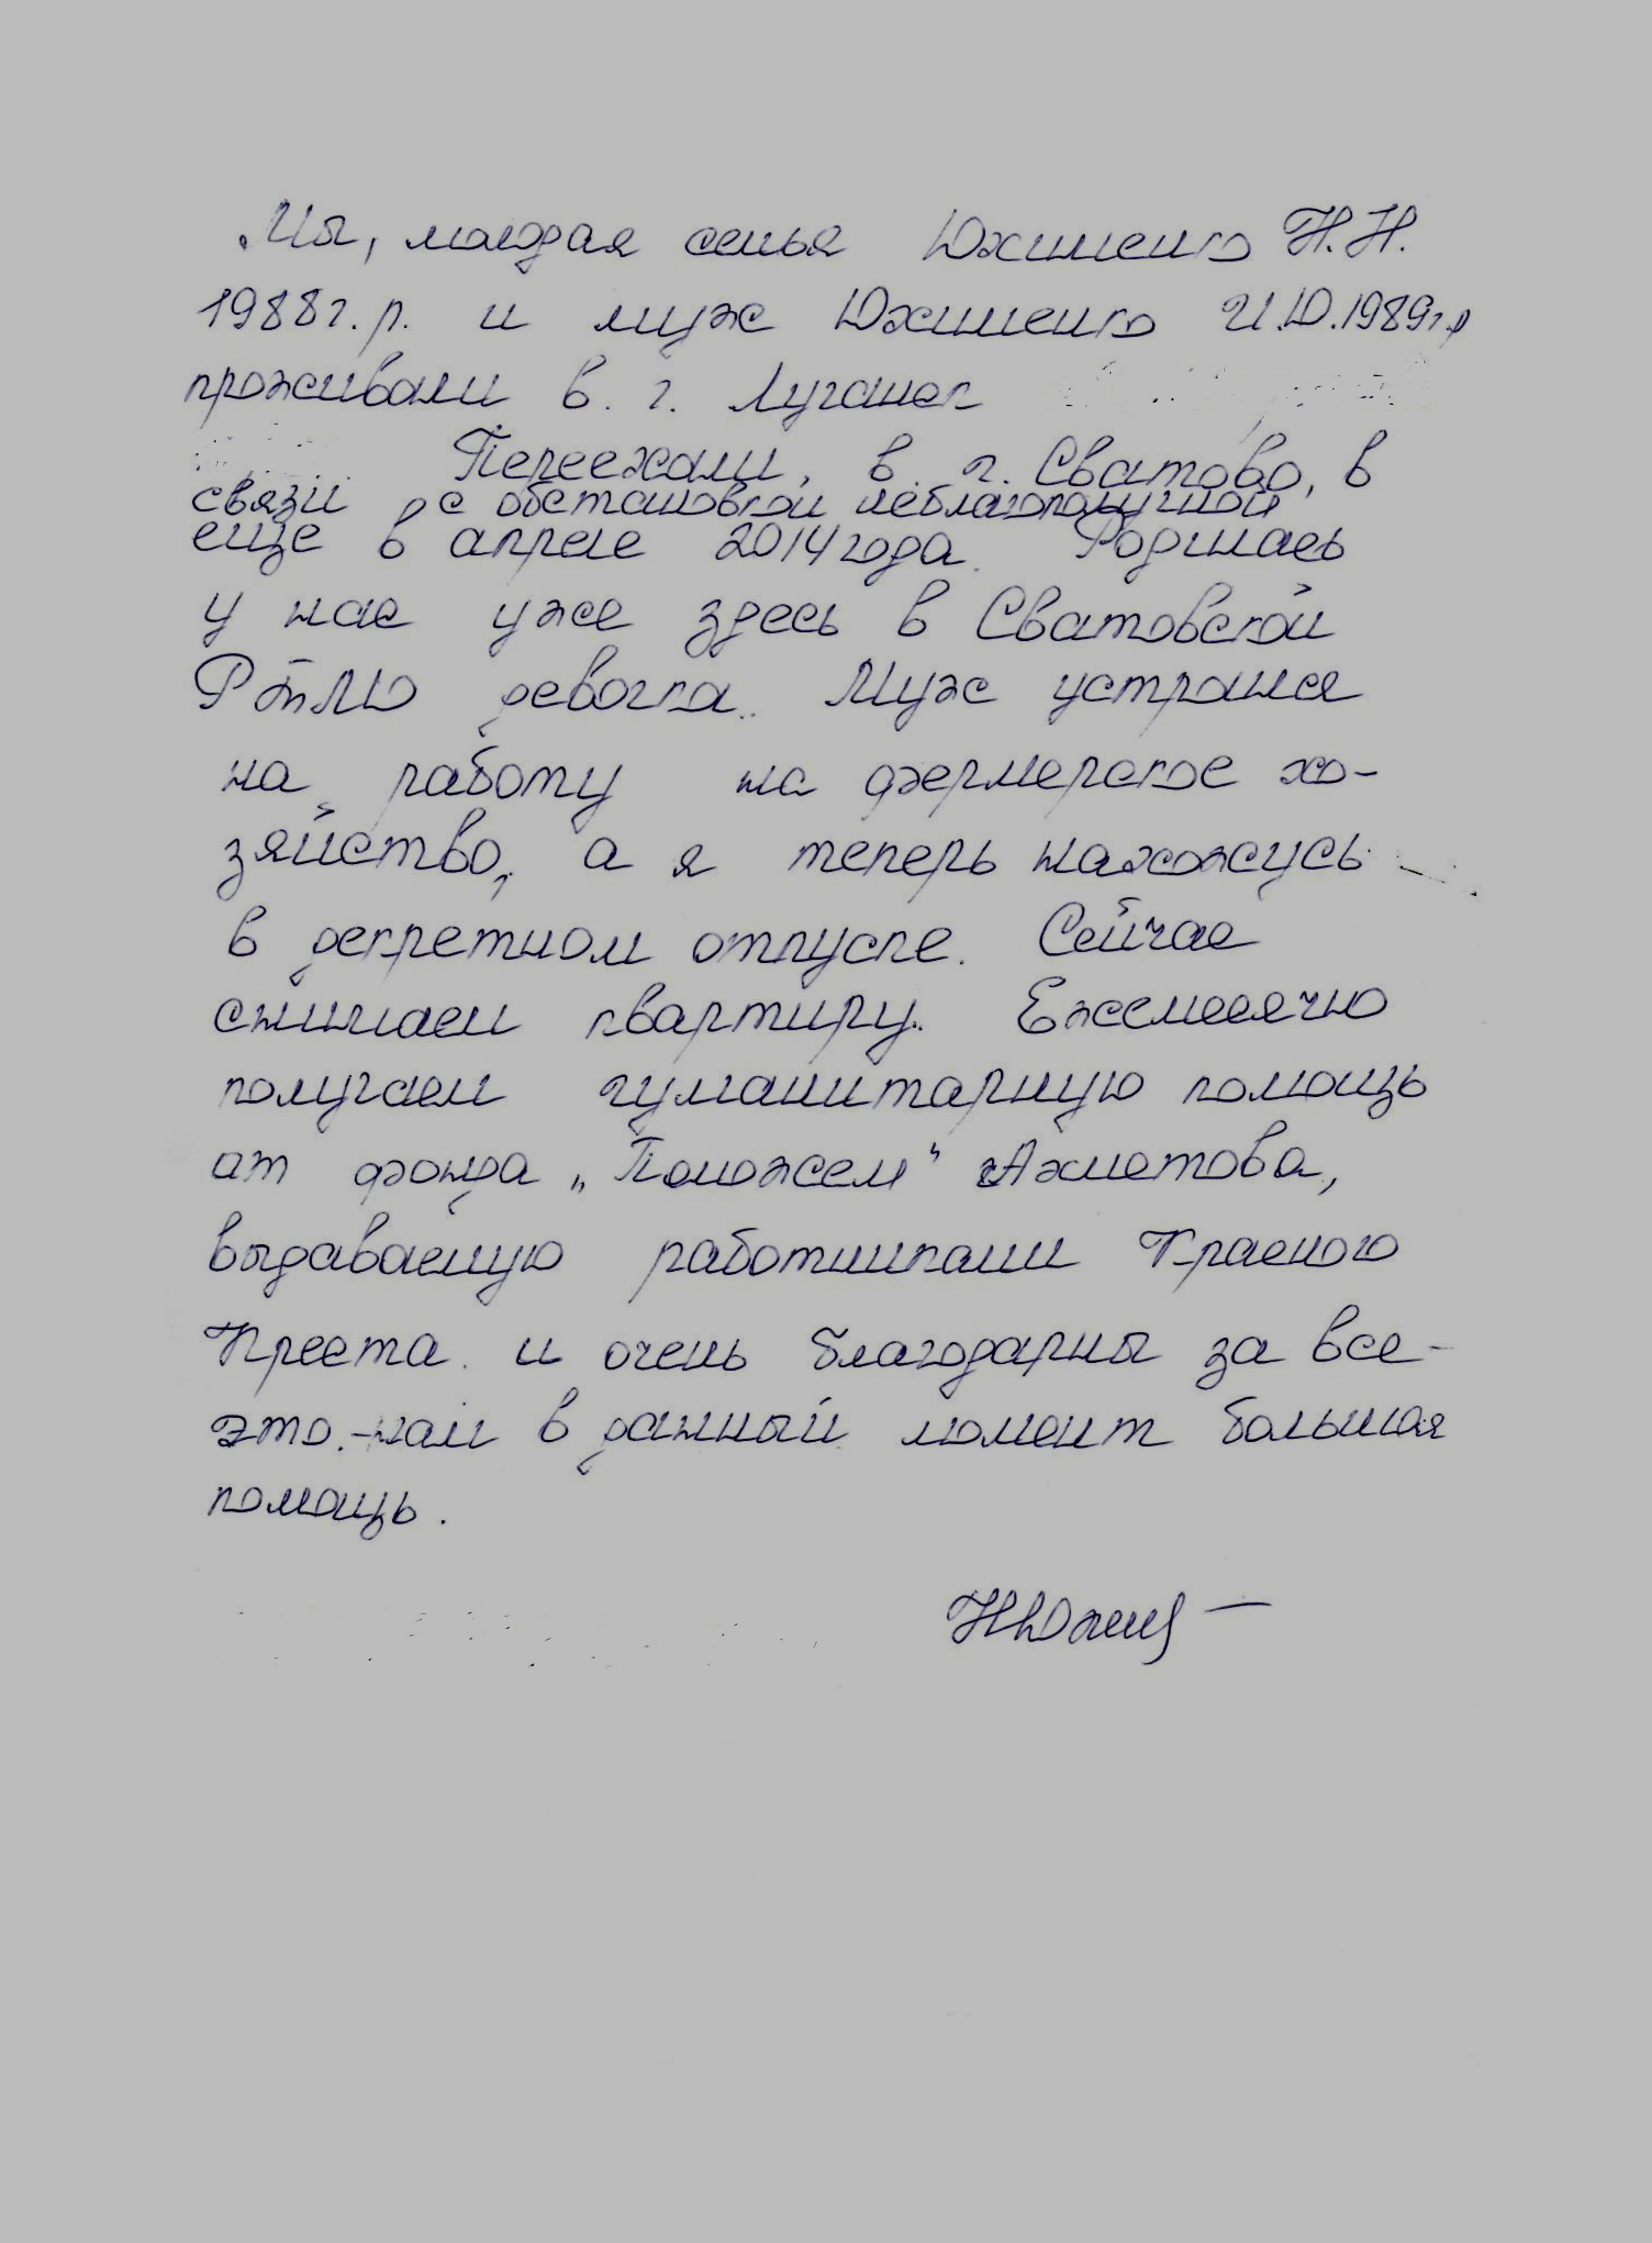 Мы, молодая семья Юхименко Н.Н.
1988г.р. и муж Юхименко И.Ю. 1989г.р
проживали в. г. Луганск
Переехали, в г. Сватово, в
связи с обстановкой неблагополучной
еще в апреле 2014 года. Родилась
у нас уже здесь в Сватовской
РТМО девочка. Муж устроился
на работу на фермерское хо-
зяйство, а я теперь нахожусь
в декретном отпуске. Сейчас
снимаем квартиру. Ежемесячно
получаем гуманитарную помощь
от фонда „Поможем" Ахметова,
выдаваемую работниками Красного
Креста. и очень благодарны за все-
это.-нам в данный момент большая
помощь.